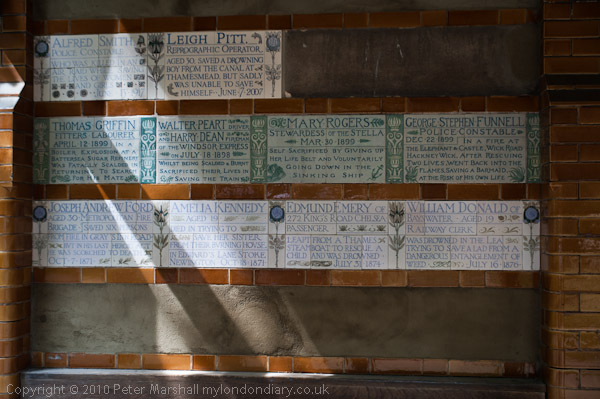 ALFRED SMITH
POLICE CONSTABLE
WHO WAS
LEIGH PITT.
REPROGRAPHIC OPERATOR.
AGED 30, SAVED A DROWNING
BOY FROM THE CANAL AT
THAMESMEAD, BUT SADLY
WAS UNABLE TO SAVE
HIMSELF · JUNE · 7 · 2007
THOMAS GRIFFIN
FITTERS LABOURER
APRIL 12 1899 IN A
EXPLOSION AT A
BATTERSEA SUGAR REFINERY
WAS FATALLY SCALDED IN
RETURNING TO SEARCH
FOR HIS MATE
WALTER PEART DRIVER
AND HARRY DEAN FIREMAN
OF THE WINDSOR EXPRESS
ON JULY 18 1898
BEING SCALDED & BURNT
SACRIFICED THEIR LIVES
IN SAVING THE TRAIN
MARY ROGERS
STEWARDESS OF THE STELLA
MAR 30 1899
SELF SACRIFICED BY GIVING UP
HER LIFE BELT AND VOLUNTARILY
GOING DOWN IN THE
SINKING SHIP
GEORGE STEPHEN FUNNELL
POLICE CONSTABLE
DEC 22 1899 IN A FIRE AT
THE ELEPHANT & CASTLE, WICK ROAD
HACKNEY WICK, AFTER RESCUING
TWO LIVES, WENT BACK INTO THE
FLAMES, SAVING A BARMAID
AT THE RISK OF HIS OWN LIFE
JOSEPH ANDREW FORD
AGED 30 METROPOLITAN FIRE
BRIGADE SAVED SIX PERSONS
FROM FIRE IN GRAYS INN
BUT IN HIS LAST HEROIC ACT
HE WAS SCORCHED TO DEATH
OCT 7 1871
AMELIA KENNEDY
AGED 19 DIED IN TRYING
TO SAVE HER SISTER
FROM THEIR BURNING HOUSE
IN EDWARD'S LANE STOKE
NEWINGTON 1871
EDMUND EMERY OF
272 KINGS ROAD CHELSEA
PASSENGER,
LEAPT FROM A THAMES
STEAMBOAT TO RESCUE A
CHILD AND WAS DROWNED
JULY 31 1874
WILLIAM DONALD OF
BAYSWATER AGED 19
RAILWAY CLERK
WAS DROWNED IN THE LEA
TRYING TO SAVE A LAD FROM A
DANGEROUS ENTANGLEMENT
OF WEED JULY 16 1876
Copyright © 2010 Peter Marshall mylondondiary.co.uk